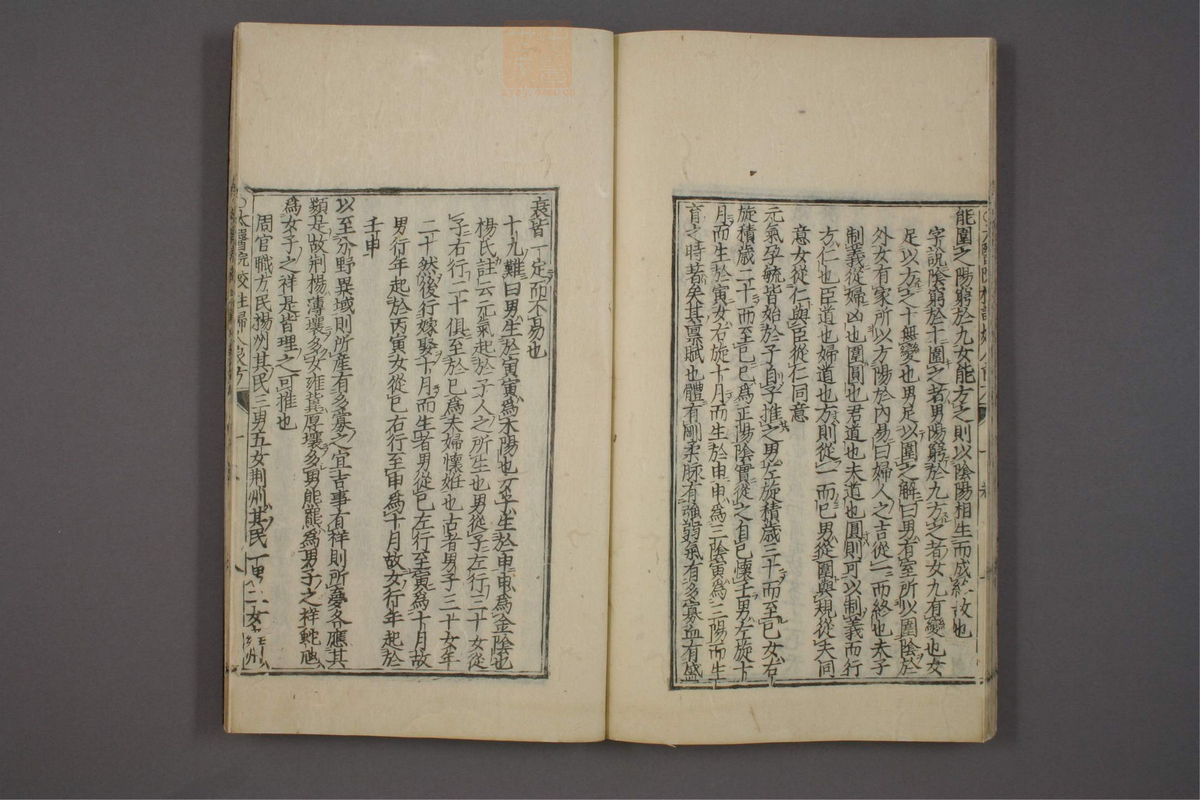 能圍之陽窮於九女能方之則以陰陽相生而成終故也
字說陰窮於十圍之者男陽窮於九方之者女九有變也女
足以方之十無變也男足以圍之解曰男有室所以圍陰於
外女有家所以方陽於內易曰婦人之吉從一而終也夫子
制義從婦凶也圍圓也君道也夫道也圓則可以制義而行
方仁也臣道也婦道也方則從一而已男從圍與規從夫同
意女從仁與臣從仁同意
元氣孕毓皆始於子自子推之男左旋積歲三十而至巳女右
旋積歲二十而至巳巳為正陽陰實從之自巳懷壬男左旋十
月而生於寅女右旋十月而生於申申為三陰寅為三陽而生
育之時著矣其稟賦也體有剛柔脉有強弱氣有多寡血有盛
衰皆一定而不易也
十九難曰男生於寅寅為木陽也女子生於申申為金陰也
楊氏註云元氣起於子人之所生也男從子左行三十女從
子右行二十俱至於巳為夫婦懷姙也古者男子三十女年
二十然後行嫁娶十月而生者男從巳左行至寅為十月故
男行年起於丙寅女從巳右行至申為十月故女行年起於
壬申
以至分野異域則所產有多寡之宜吉事有祥則所夢各應其
類是故荊楊薄壤多女雍冀厚壤多男熊羆為男子之祥蛇虺
為女子之祥是皆理之可推也
周官職方氏揚州其民三男五女荊州其民一男二女
太醫院校註婦人良方